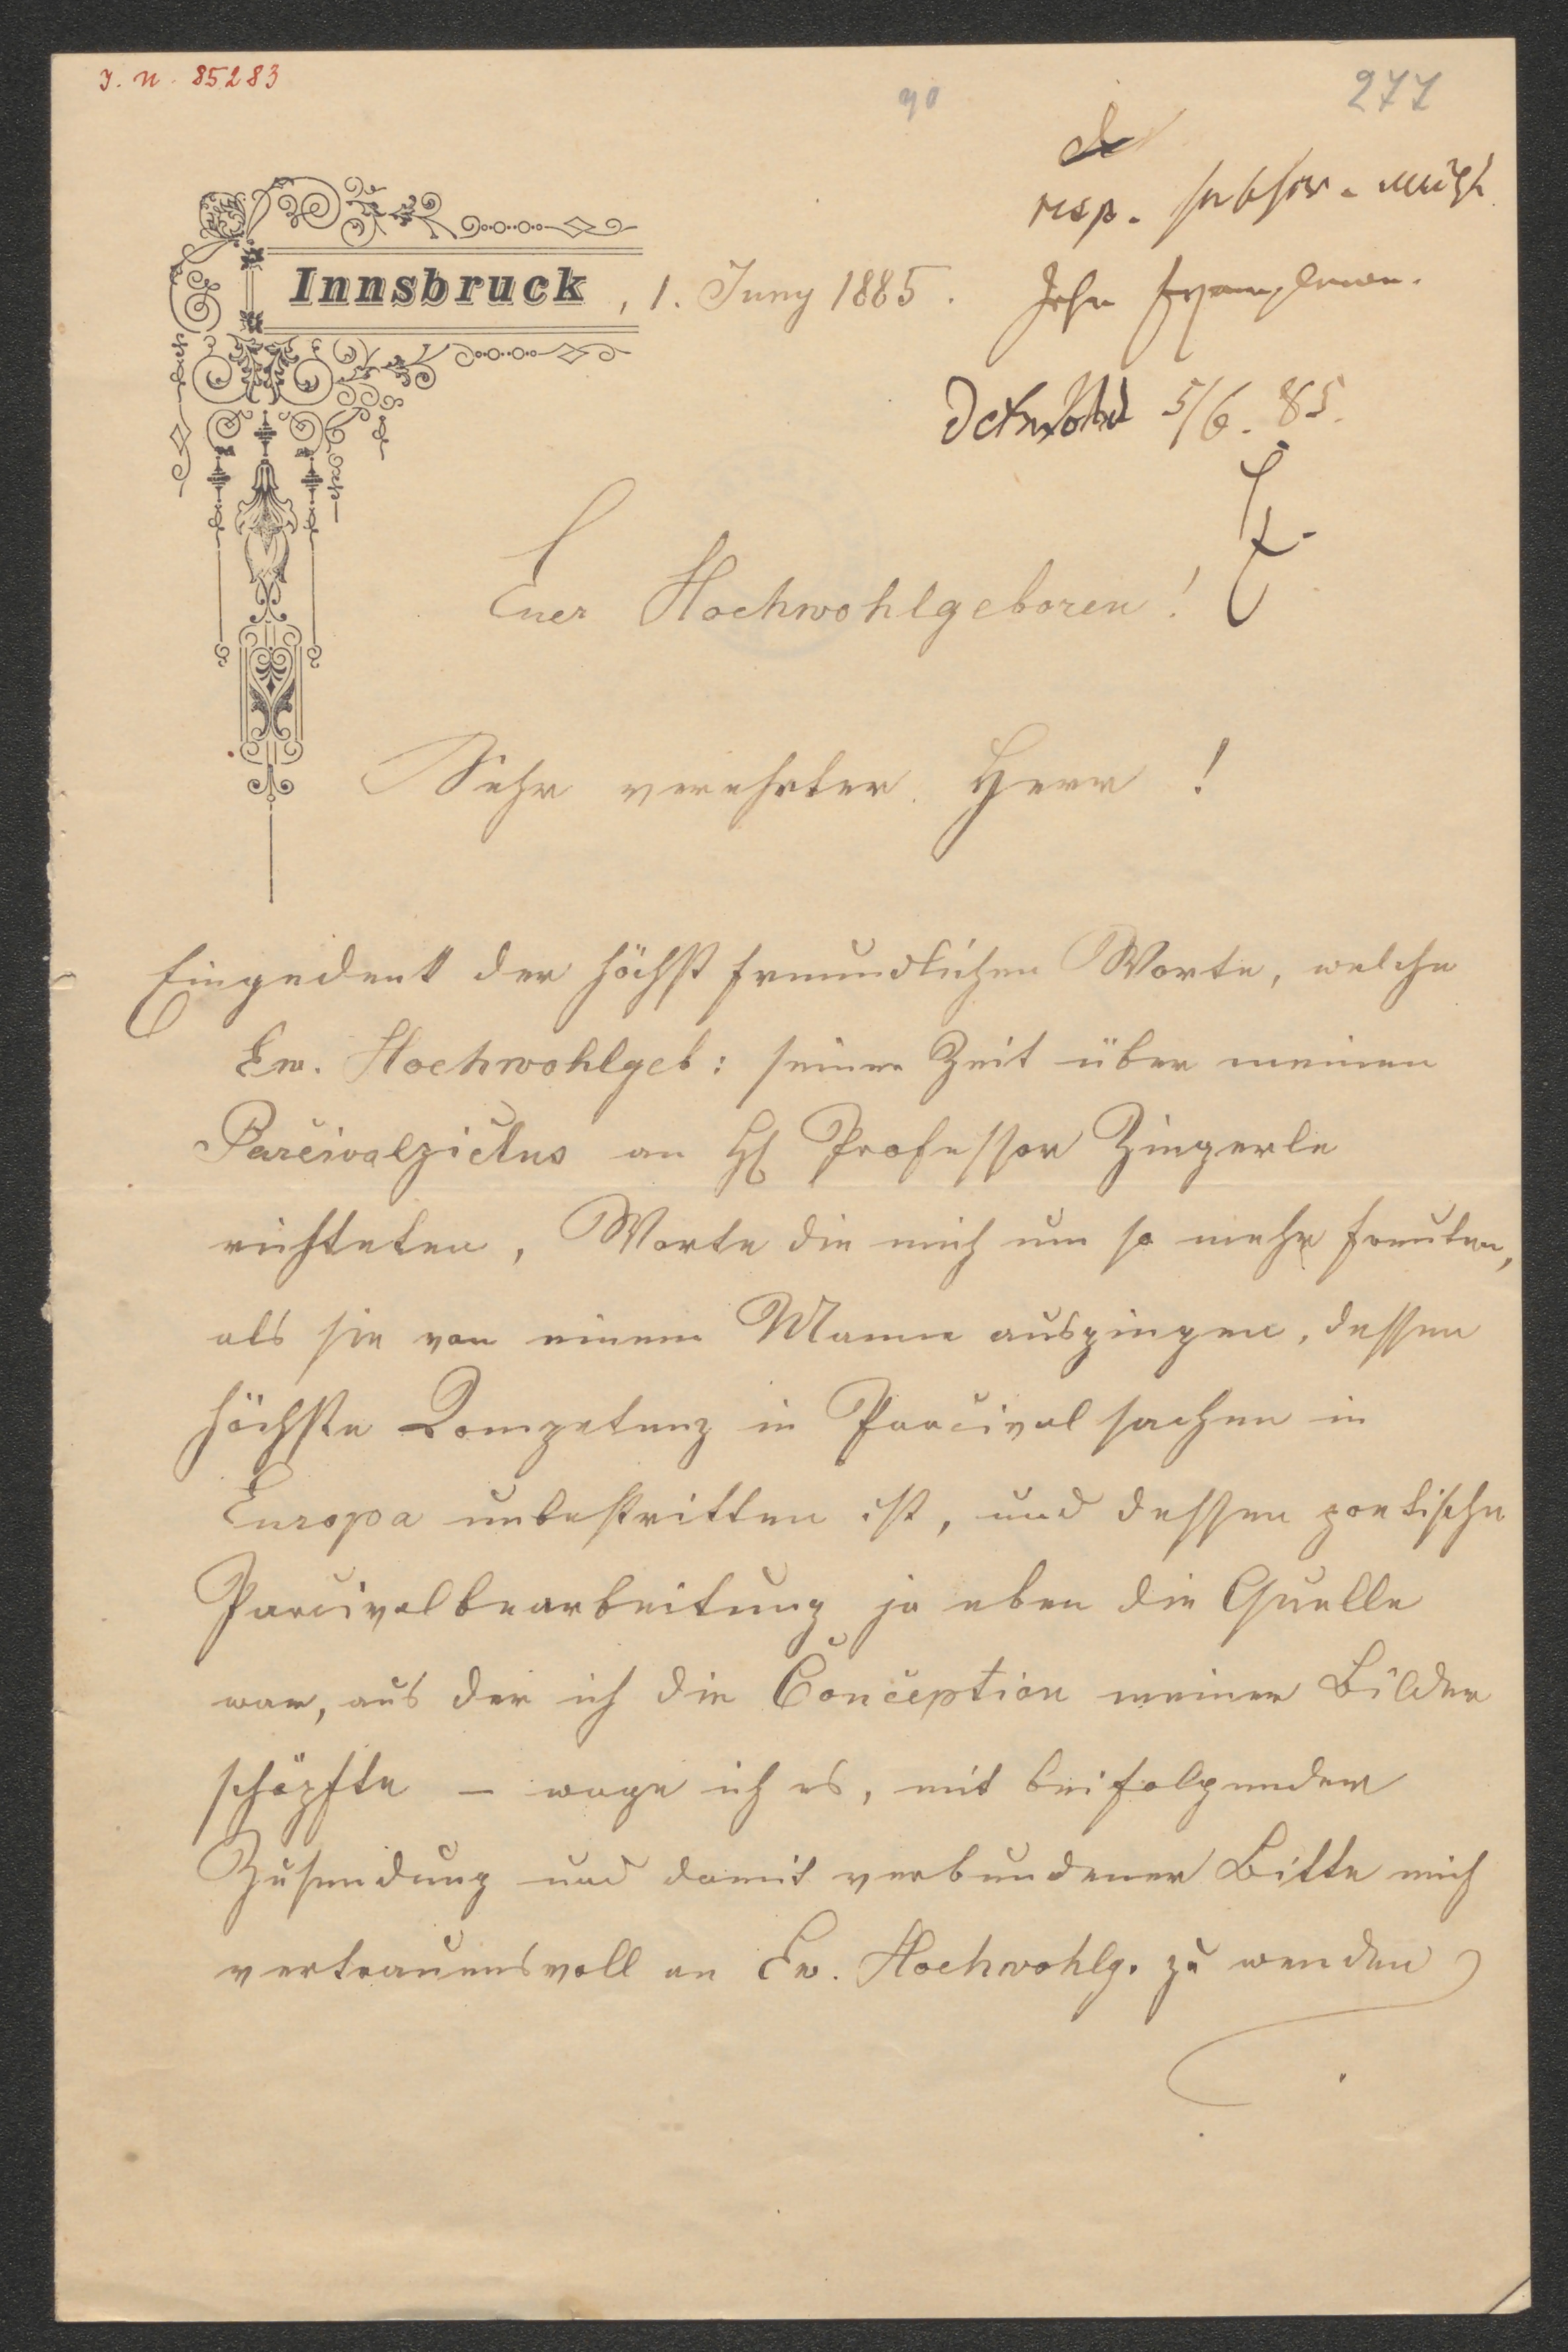 J. N. 85283
90
277
resp.
Innsbruck, 1. Juny 1885.
Detmold 5/6. 85.
Euer Hochwohlgeboren!
Sehr verehrter Herr !
Eingedenk der höchst freundlichen Worte, welche
Ew. Hochwohlgeb: seiner Zeit über meinen
Parcivalziclus an H Professor Zingerle
richteten, Worte die mich um so mehr freuten,
als sie von einem Manne ausgingen, dessen
höchste Competenz in Parcival sachen in
Europa unbestritten ist, und dessen poetische
Parcivalbearbeitung ja eben die Quelle
war, aus der ich die Conception meiner Bilder
schöpfte – wage ich es, mit beifolgender
Zusendung und damit verbundener Bitte mich
vertrauensvoll an Ew. Hochwohlg. zu wenden